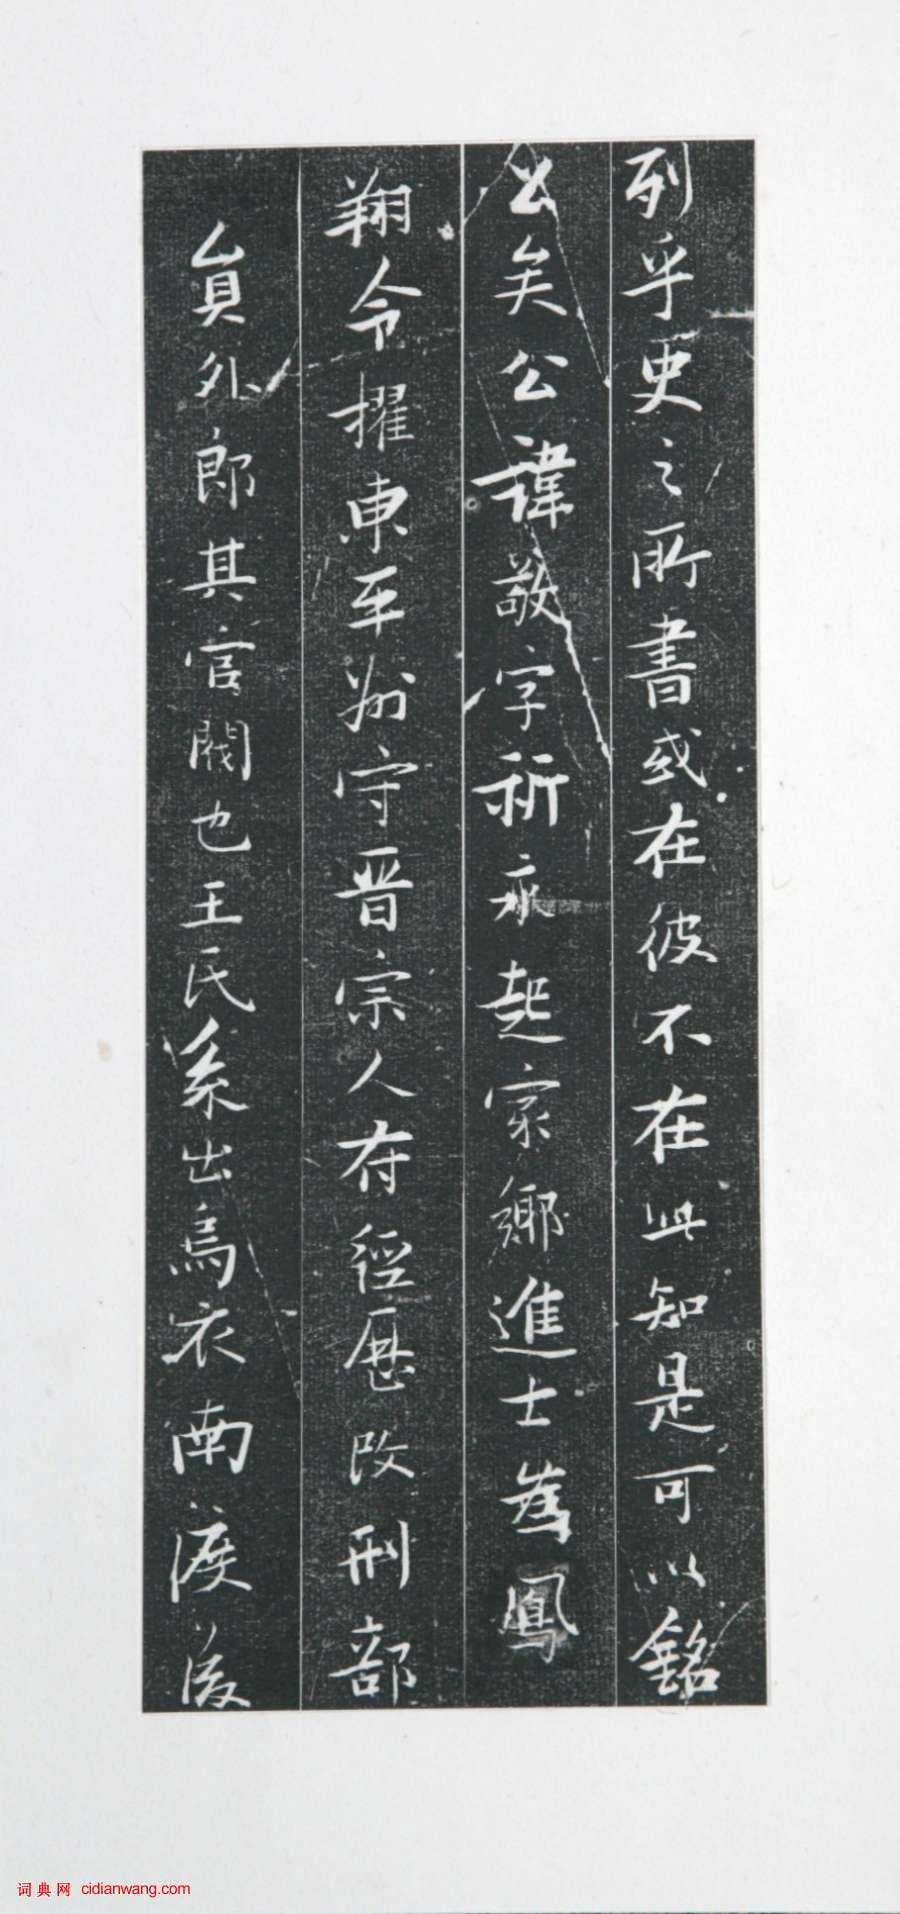 列乎史之所書或在彼不在此知是可以銘
公矣公諱敬字祈永起家鄉進士為鳳
翔令擢東平州守晋宗人府經歷改刑部
員外郎其官閥也王氏系出烏衣南渡後
词典网 cidianwang.com